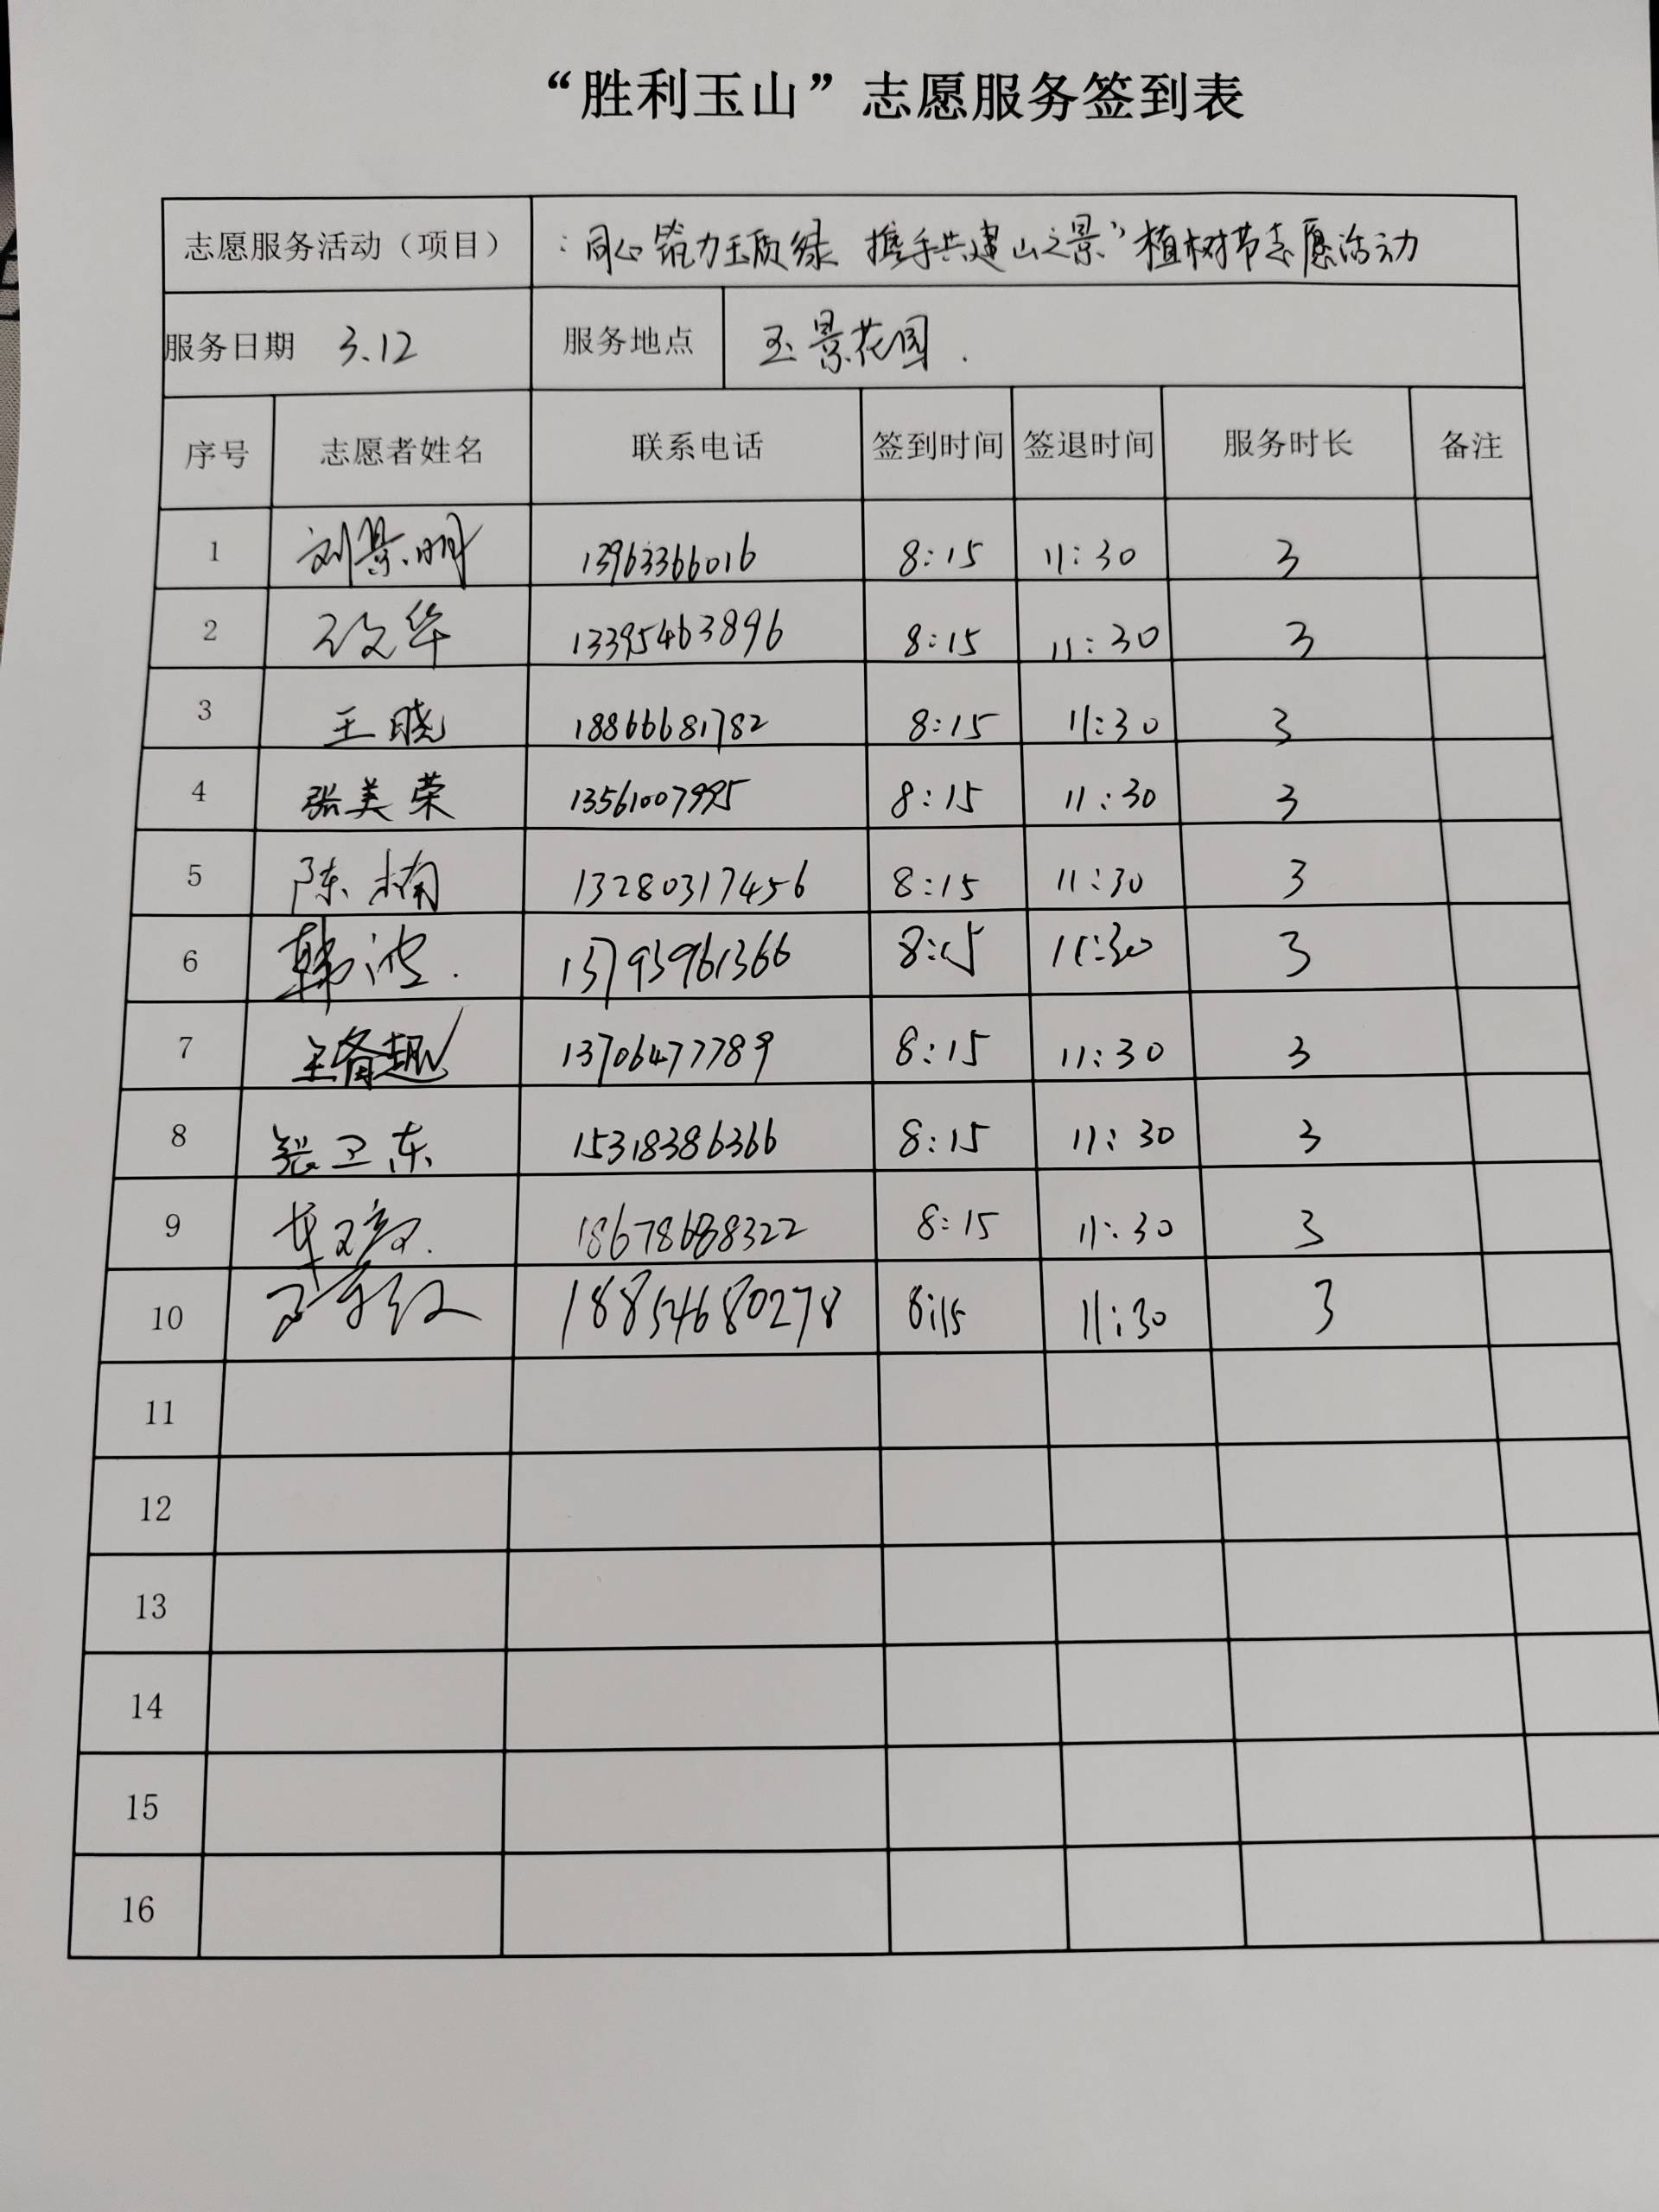 “胜利玉山”志愿服务签到表
志愿服务活动（项目） “同心筑力玉质绿 携手共建山之景”植树节志愿活动
服务日期 3.12 服务地点 玉景花园.
序号 志愿者姓名 联系电话 签到时间 签退时间 服务时长 备注
1 刘景明 13963366016 8:15 11:30 3
2 石文华 13395463896 8:15 11:30 3
3 王晓 18866681782 8:15 11:30 3
4 张美荣 13561007995 8:15 11:30 3
5 陈楠 13280317456 8:15 11:30 3
6 韩波. 13793961366 8:15 11:30 3
7 13706477789 8:15 11:30 3
8 张卫东 15318386366 8:15 11:30 3
9 18678688322 8:15 11:30 3
10 18854680278 8:15 11:30 3
11
12
13
14
15
16